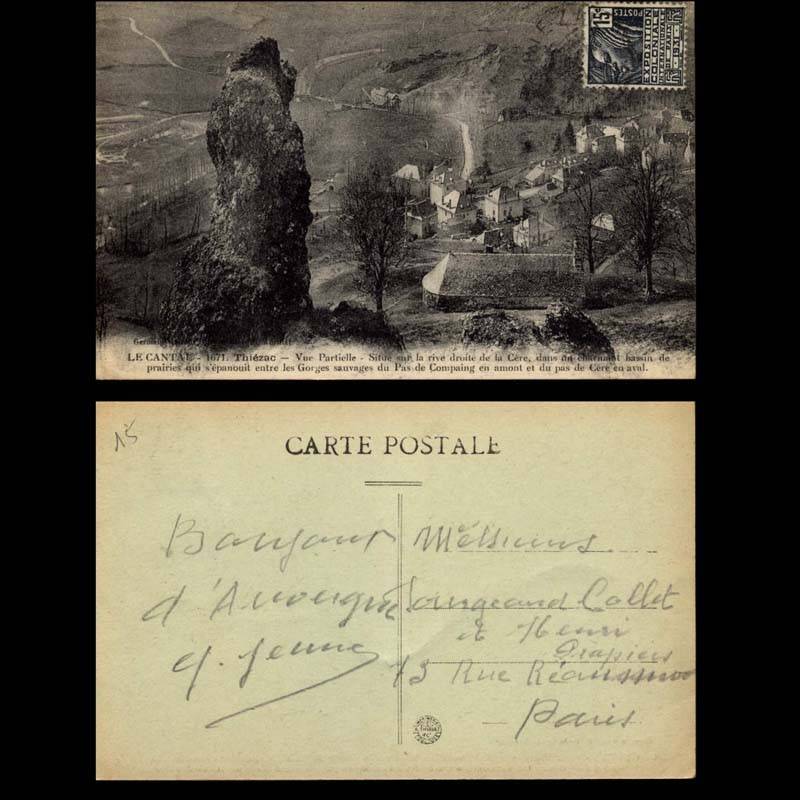 15c
POSTES
EXPOSITION
COLONIALE
INTERNATIONALE
DE PARIS
1931
LE CANTAL - 1671. Thiézac — Vue Partielle - Situé sur la rive droite de la Cère, dans un charmant bassin de
prairies qui s'épanouit entre les Gorges sauvages du Pas de Compaing en amont et du pas de Cère en aval.
15
CARTE POSTALE
Bonjour
d'Auvergne
Messieurs
Collet
& Henri
Drapiers
73 Rue Réaumur
Paris